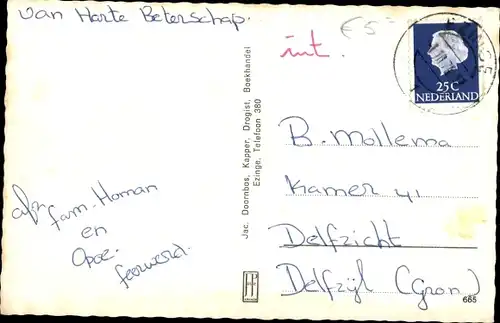 van Harte Beterschap.
int.
€5-
25C
NEDERLAND
Jac. Doornbos, Kapper, Drogist, Boekhandel
Ezinge, Telefoon 380
B. Mollema
Kamer 41
Delfzicht
Delfzijl (Gron.)
afz
fam. Homan
en
Opoe.
665